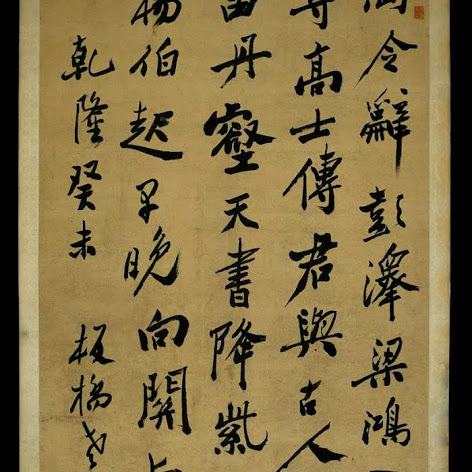 令辭彭澤梁鴻
尋高士傳君與古人
留丹壑天書降紫
楊伯起早晚向關
乾隆癸未 板橋老